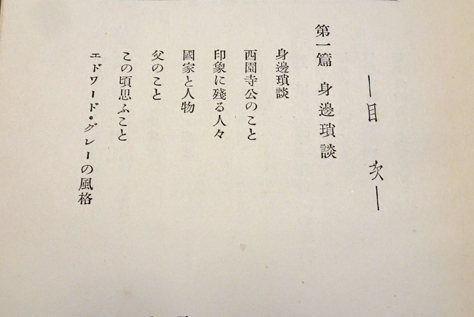 ―目次―
第一篇 身邊瑣談
身邊瑣談
西園寺公のこと
印象に殘る人々
國家と人物
父のこと
この頃思ふこと
エドワード・グレーの風格